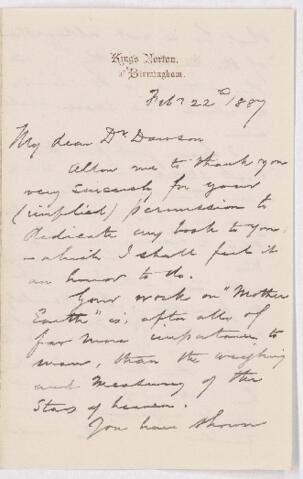 King's Norton,
nr Birmingham.
Feby 22d 1887
My dear Dr Dawson
Allow me to thank you
very sincerely for your
(implied) permission to
dedicate my book to you,
– which I shall feel it
an honor to do.
Your work on "Mother
Earth" is, after all, of
far more importance to
man, than the weighing
and measuring of the
Stars of heaven.
You have shown